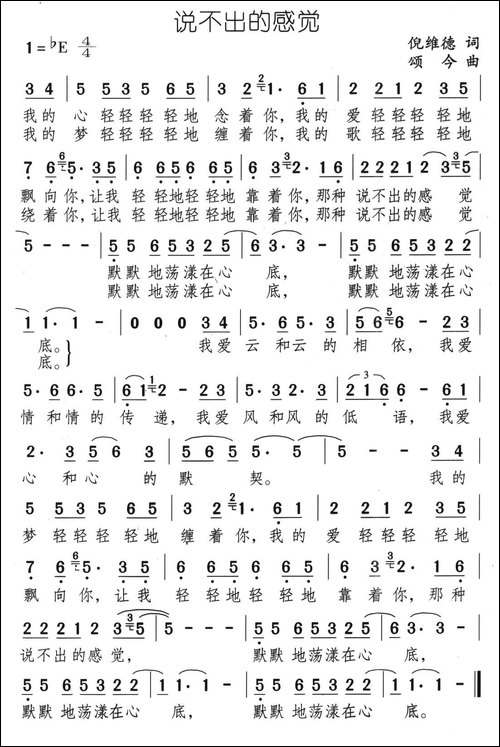 说不出的感觉
1=♭E 4/4
倪维德 词
颂今 曲
3 4 | 5 5 3 5 5 5 | 3 2 1· 6 1 | 2 2 1 2 3 5 |
我的 心 轻轻轻轻地 念着你,我的 爱 轻轻轻轻地
我的 梦 轻轻轻轻地 缠着你,我的 歌 轻轻轻轻地
7 6 5· 3 5 | 6 6 5 6 6 5 | 6 3 2· 1 6 | 2 2 2 2 1 2 3 5 |
飘向你,让我 轻轻地轻轻地 靠着你,那种 说不出的感 觉
绕着你,让我 轻轻地轻轻地 靠着你,那种 说不出的感 觉
5 - - - | 5 5 6 5 3 2 2 5 | 6 3· 3 - | 5 5 6 5 3 2 2 1 |
默默 地荡漾在心 底, 默默 地荡漾在心
默默 地荡漾在心 底, 默默 地荡漾在心
1 1· 1 - | 0 0 0 3 4 | 5· 6 5· 3 | 5 6 5 6 - 2 3 |
底。 我爱 云和云的 相依,我爱
底。
5· 6 6· 5 | 6 1 2 - 2 3 | 5· 3 2· 3 | 2 1 6 6 - 2 3 |
情和情的 传递,我爱 风和风的 低语,我爱
2· 3 5 6 3 | 5 6 5 5· 5 | 5 - - 3 4 |
心和心的 默契。 我的
5 5 3 5 5 5 | 3 2 1· 6 1 | 2 2 1 2 3 5 |
梦 轻轻轻轻地 缠着你,我的 爱 轻轻轻轻地
7 6 5· 3 5 | 6 6 5 6 6 5 | 6 3 2· 1 6 |
飘向你,让我 轻轻地轻轻地 靠着你,那种
2 2 2 2 1 2 3 5 | 5 - - - | 5 5 6 5 3 2 2 5 | 6 3· 3 - |
说不出的感觉, 默默 地荡漾在心 底,
5 5 6 5 3 2 2 1 | 1 1· 1 - | 5 5 6 5 3 2 2 1 | 1 1· 1 - ‖
默默 地荡漾在心 底, 默默 地荡漾在心 底。